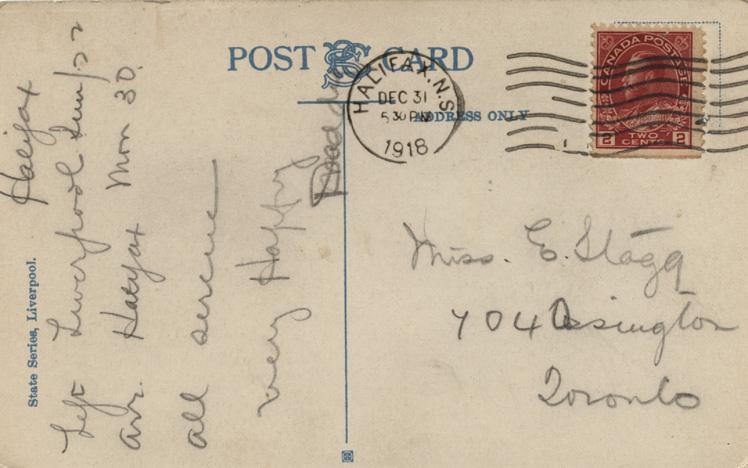 POST CARD
ADDRESS ONLY
HALIFAX. N.S.
DEC 31
5 30 PM
1918
CANADA POSTAGE
2 TWO CENTS 2
Halifax
Left Liverpool Sun 22
arr. Halifax Mon 30.
all serene
very Happy
Daddy
Miss. E. Stagg
704 Ossington
Toronto
State Series, Liverpool.